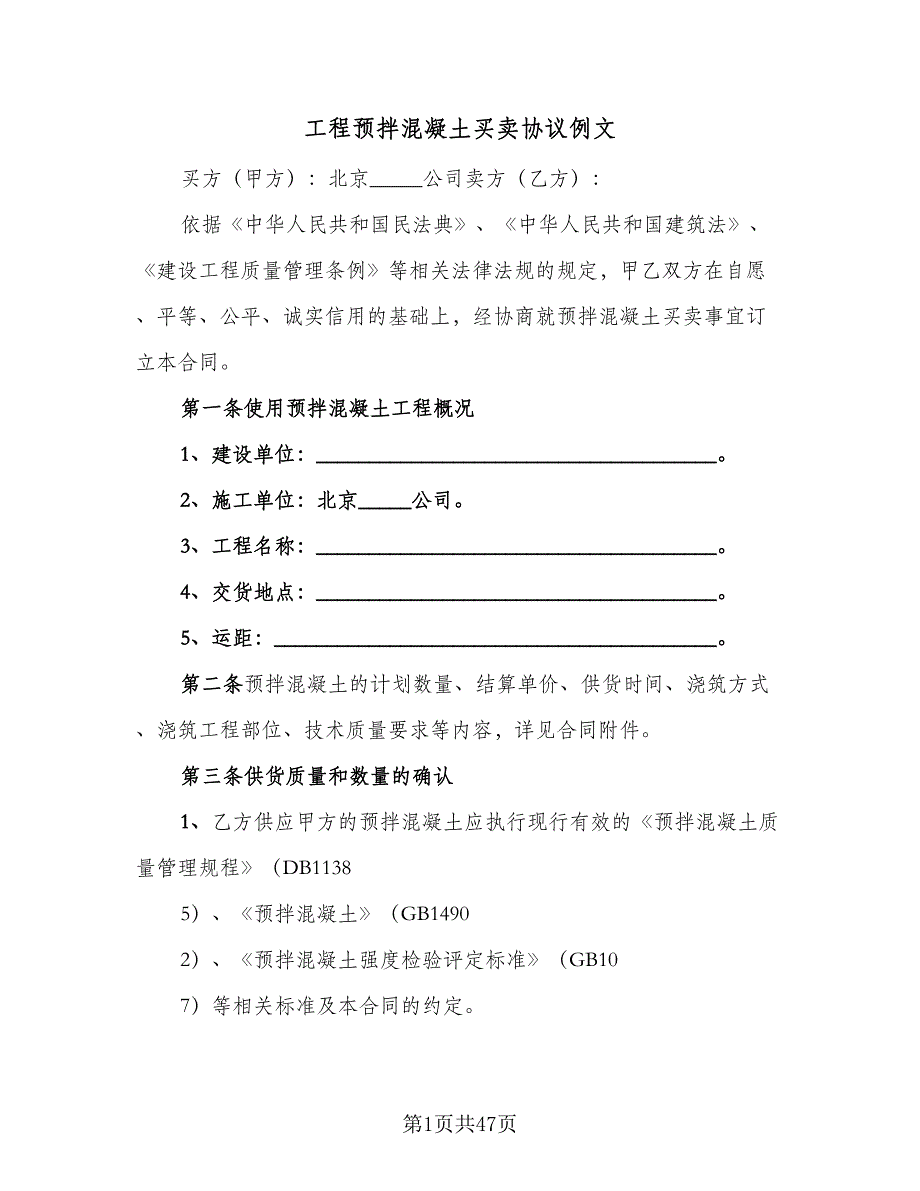 工程预拌混凝土买卖协议例文
买方（甲方）：北京_____公司卖方（乙方）：
依据《中华人民共和国民法典》、《中华人民共和国建筑法》、
《建设工程质量管理条例》等相关法律法规的规定，甲乙双方在自愿
、平等、公平、诚实信用的基础上，经协商就预拌混凝土买卖事宜订
立本合同。
第一条使用预拌混凝土工程概况
1、建设单位：______________________________________。
2、施工单位：北京_____公司。
3、工程名称：______________________________________。
4、交货地点：______________________________________。
5、运距：__________________________________________。
第二条预拌混凝土的计划数量、结算单价、供货时间、浇筑方式
、浇筑工程部位、技术质量要求等内容，详见合同附件。
第三条供货质量和数量的确认
1、乙方供应甲方的预拌混凝土应执行现行有效的《预拌混凝土质
量管理规程》（DB1138
5）、《预拌混凝土》（GB1490
2）、《预拌混凝土强度检验评定标准》（GB10
7）等相关标准及本合同的约定。
第1页共47页